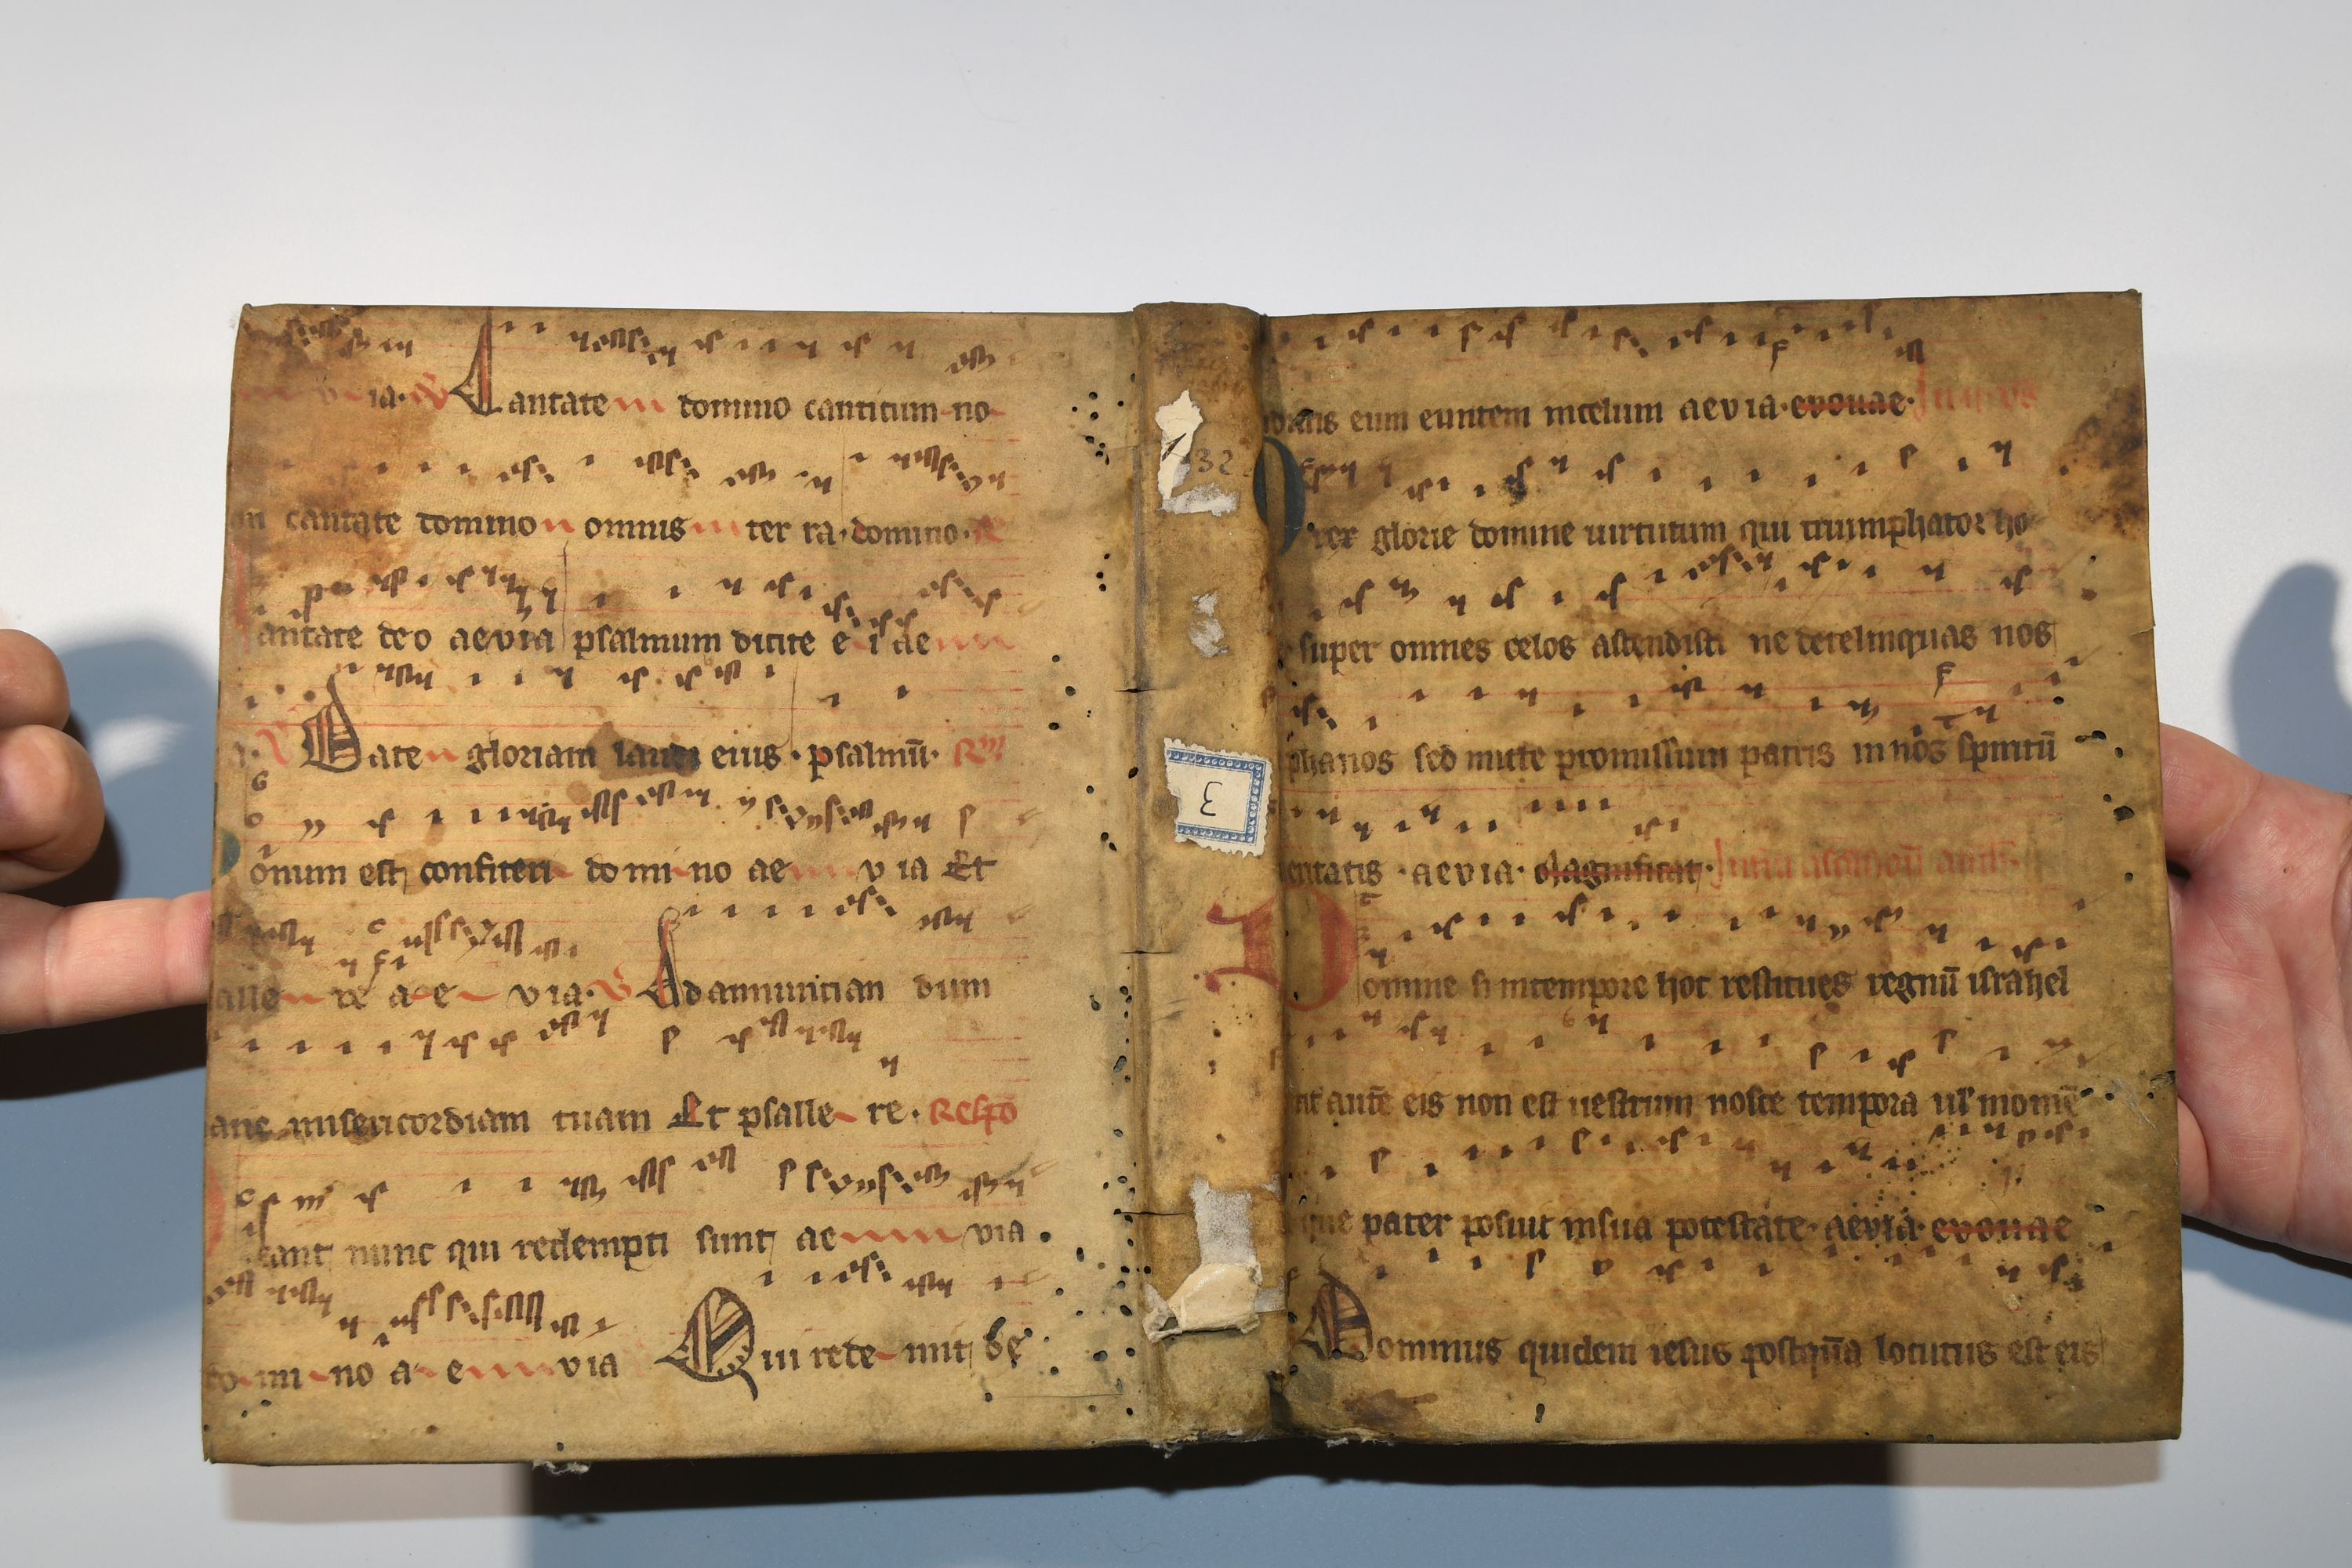 ia. V Cantate domino canticum no
cantate domino omnis ter ra. domino. R
antate deo aevia psalmum dicite e i ae
V Date gloriam laudi eius. psalmū. R
onum est confiteri do mi no ae v ia Et
psalle re a e via. V Ad annuntian dum
mane misericordiam tuam Et psalle re. Respo
icant nunc qui redempti sunt ae via.
do mi no a e via Qui rede mit be
32
3
eum euntem incelum aevia. evouae. In ii vs
rex glorie domine uirtutum qui triumphator ho
super omnes celos ascendisti ne derelinquas nos
phanos sed mitte promissum patris in nos spiritū
eritatis. aevia. Magnificat.
Domine si intempore hoc restitues regnū israhel
autē eis non est uestrum nosce tempora ul momē
que pater posuit insua potestate. aevia. evouae
Dominus quidem iesus postquā locutus est eis